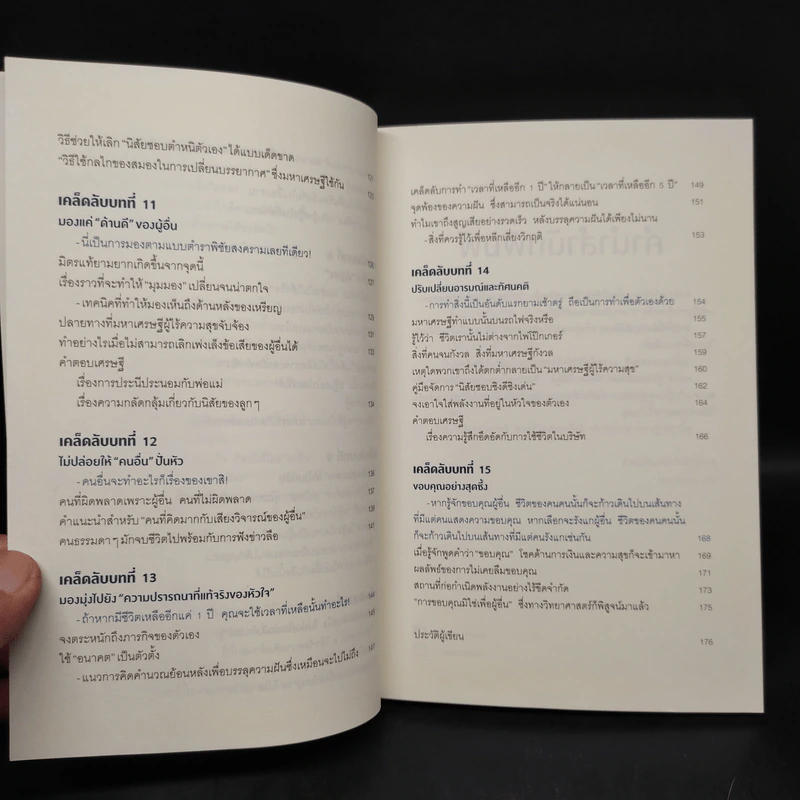 วิธีช่วยให้เลิก "นิสัยชอบตำหนิตัวเอง" ได้แบบเด็ดขาด
"วิธีใช้กลไกของสมองในการเปลี่ยนบรรยากาศ" ซึ่งมหาเศรษฐีใช้กัน
เคล็ดลับบทที่ 11
มองแค่ "ด้านดี" ของผู้อื่น
- นี่เป็นการมองตามแบบตำราพิชัยสงครามเลยทีเดียว!
มิตรแท้ยามยากเกิดขึ้นจากจุดนี้
เรื่องราวที่จะทำให้ "มุมมอง" เปลี่ยนจนน่าตกใจ
- เทคนิคที่ทำให้มองเห็นถึงด้านหลังของเหรียญ
ปลายทางที่มหาเศรษฐีผู้ไร้ความสุขจับจ้อง
ทำอย่างไรเมื่อไม่สามารถเลิกเพ่งเล็งข้อเสียของผู้อื่นได้
คำตอบเศรษฐี
เรื่องการประนีประนอมกับพ่อแม่
เรื่องความกลัดกลุ้มเกี่ยวกับนิสัยของลูกๆ 134
เคล็ดลับบทที่ 12
ไม่ปล่อยให้ "คนอื่น" ปั่นหัว
- คนอื่นจะทำอะไรก็เรื่องของเขาสิ! 136
คนที่ผิดพลาดเพราะผู้อื่น คนที่ไม่ผิดพลาด 137
คำแนะนำสำหรับ "คนที่คิดมากกับเสียงวิจารณ์ของผู้อื่น" 139
คนธรรมดาๆ มักจบชีวิตไปพร้อมกับการฟังข่าวลือ 141
เคล็ดลับบทที่ 13
มองมุ่งไปยัง "ความปรารถนาที่แท้จริงของหัวใจ"
- ถ้าหากมีชีวิตเหลืออีกแค่ 1 ปี คุณจะใช้เวลาที่เหลือนั้นทำอะไร! 144
จงตระหนักถึงภารกิจของตัวเอง 145
ใช้ "อนาคต" เป็นตัวตั้ง
- แนวการคิดคำนวณย้อนหลังเพื่อบรรลุความฝันซึ่งเหมือนจะไปไม่ถึง 147
เคล็ดลับการทำ "เวลาที่เหลืออีก 1 ปี" ให้กลายเป็น "เวลาที่เหลืออีก 5 ปี" 149
จุดพ้องของความฝัน ซึ่งสามารถเป็นจริงได้แน่นอน 151
ทำไมเขาถึงสูญเสียอย่างรวดเร็ว หลังบรรลุความฝันได้เพียงไม่นาน
- สิ่งที่ควรรู้ไว้เพื่อหลีกเลี่ยงวิกฤติ 153
เคล็ดลับบทที่ 14
ปรับเปลี่ยนอารมณ์และทัศนคติ
- การทำสิ่งนี้เป็นอันดับแรกยามเช้าตรู่ ถือเป็นการทำเพื่อตัวเองด้วย 154
มหาเศรษฐีทำแบบนั้นบนรถไฟจริงหรือ 155
รู้ไว้ว่า ชีวิตเรานั้นไม่ต่างจากไพ่โป๊กเกอร์ 157
สิ่งที่คนจนกังวล สิ่งที่มหาเศรษฐีกังวล 159
เหตุใดพวกเขาถึงได้ตกต่ำกลายเป็น "มหาเศรษฐีผู้ไร้ความสุข" 160
คู่มือจัดการ "นิสัยชอบชิงดีชิงเด่น" 162
จงเอาใจใส่พลังงานที่อยู่ในหัวใจของตัวเอง 164
คำตอบเศรษฐี
เรื่องความรู้สึกอึดอัดกับการใช้ชีวิตในบริษัท 166
เคล็ดลับบทที่ 15
ขอบคุณอย่างสุดซึ้ง
- หากรู้จักขอบคุณผู้อื่น ชีวิตของคนคนนั้นก็จะก้าวเดินไปบนเส้นทาง
ที่มีแต่คนแสดงความขอบคุณ หากเลือกจะรังแกผู้อื่น ชีวิตของคนคนนั้น
ก็จะก้าวเดินไปบนเส้นทางที่มีแต่คนรังแกเช่นกัน 168
เมื่อรู้จักพูดคำว่า "ขอบคุณ" โชคด้านการเงินและความสุขก็จะเข้ามาหา 169
ผลลัพธ์ของการไม่เคยลืมขอบคุณ 171
สถานที่ก่อกำเนิดพลังงานอย่างไร้ขีดจำกัด 173
"การขอบคุณมิใช่เพื่อผู้อื่น" ซึ่งทางวิทยาศาสตร์ก็พิสูจน์มาแล้ว 175
ประวัติผู้เขียน 176